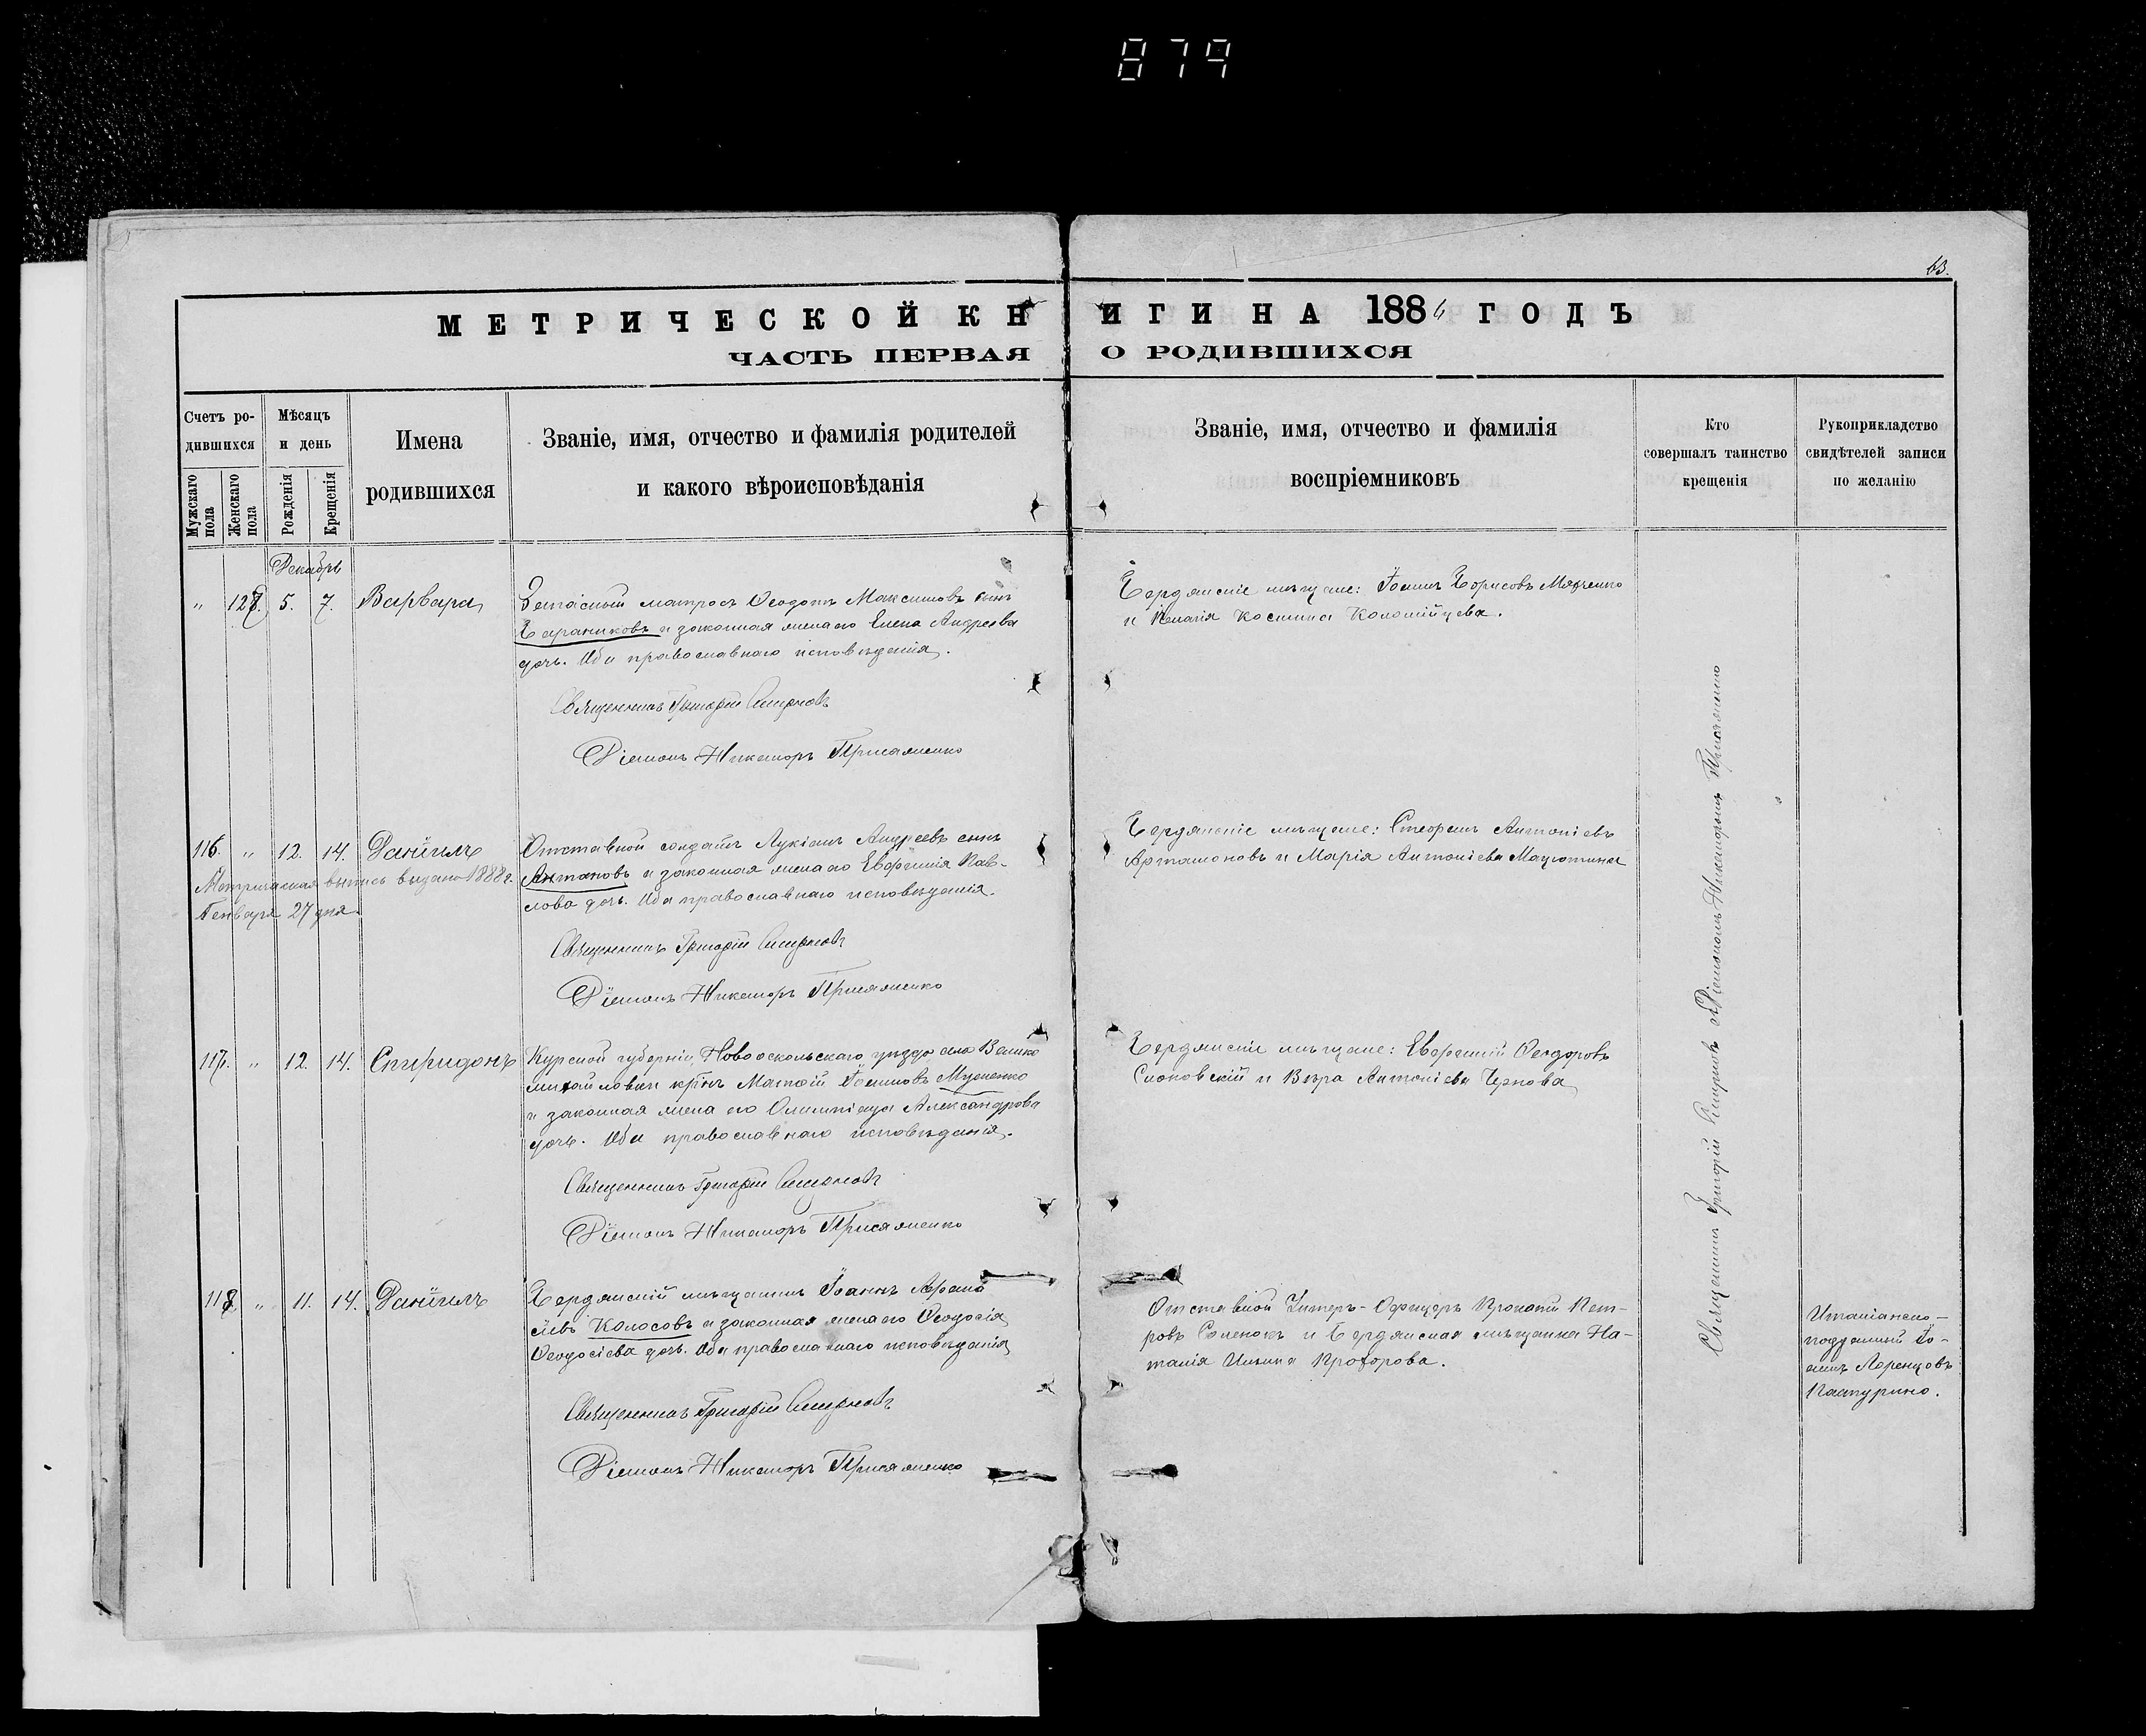 879
63.
МЕТРИЧЕСКОЙ КНИГИ НА 1886 ГОДЪ
ЧАСТЬ ПЕРВАЯ О РОДИВШИХСЯ
Счетъ ро-
дившихся
Мужскаго пола
Женскаго пола
Мѣсяцъ
и день
Рожденія
Крещенія
Имена
родившихся
Званіе, имя, отчество и фамилія родителей
и какого вѣроисповѣданія
Званіе, имя, отчество и фамилія
воспріемниковъ
Кто
совершалъ таинство
крещенія
Рукоприкладство
свидѣтелей записи
по желанію
Декабрь
" 128. 5. 7. Варвара
матросъ Ѳеодотъ Максимовъ сынъ
и законная жена его Елена Андреева
дочь. Оба православнаго исповѣданія.
Священникъ Григорій Смирновъ
Діаконъ Никаноръ Присяженко
Бердянскіе мѣщане: Іоаннъ Борисовъ
и Пелагія Космина Коломійцева.
116. " 12. 14. Даніилъ
Метрическая выпись выдана 1888 г.
Генваря 27 дня.
Отставной солдатъ Лукіанъ Андреевъ сынъ
Антоновъ и законная жена его Евфимія Пав-
лова дочь. Оба православнаго исповѣданія.
Священникъ Григорій Смирновъ
Діаконъ Никаноръ Присяженко
Бердянскіе мѣщане: Стефанъ Антоніевъ
Артамоновъ и Марія Антоніева
117. " 12. 14. Спиридонъ
Курской губерніи, Новооскольскаго уѣзда села Велико
михайловки кр҃нъ Матѳій Іоанновъ
и законная жена его Олимпіада Александрова
дочь. Оба православнаго исповѣданія.
Священникъ Григорій Смирновъ
Діаконъ Никаноръ Присяженко
Бердянскіе мѣщане: Евфимій Ѳеодоровъ
и Вѣра Антоніева Чернова
118. " 11. 14. Даніилъ
Бердянскій мѣщанинъ Іоаннъ Афана
сіевъ Колосовъ и законная жена его Ѳеодосія
Ѳеодосіева дочь. Оба православнаго исповѣданія
Священникъ Григорій Смирновъ
Діаконъ Никаноръ Присяженко
Отставной Унтеръ-Офицеръ Прокопій Пет-
ровъ и Бердянская мѣщанка На-
талія Ильина Прохорова.
Италіанско-
подданный Іо-
аннъ Лоренцовъ
Священникъ Григорій Смирновъ съ Діакономъ Никаноромъ Присяженко